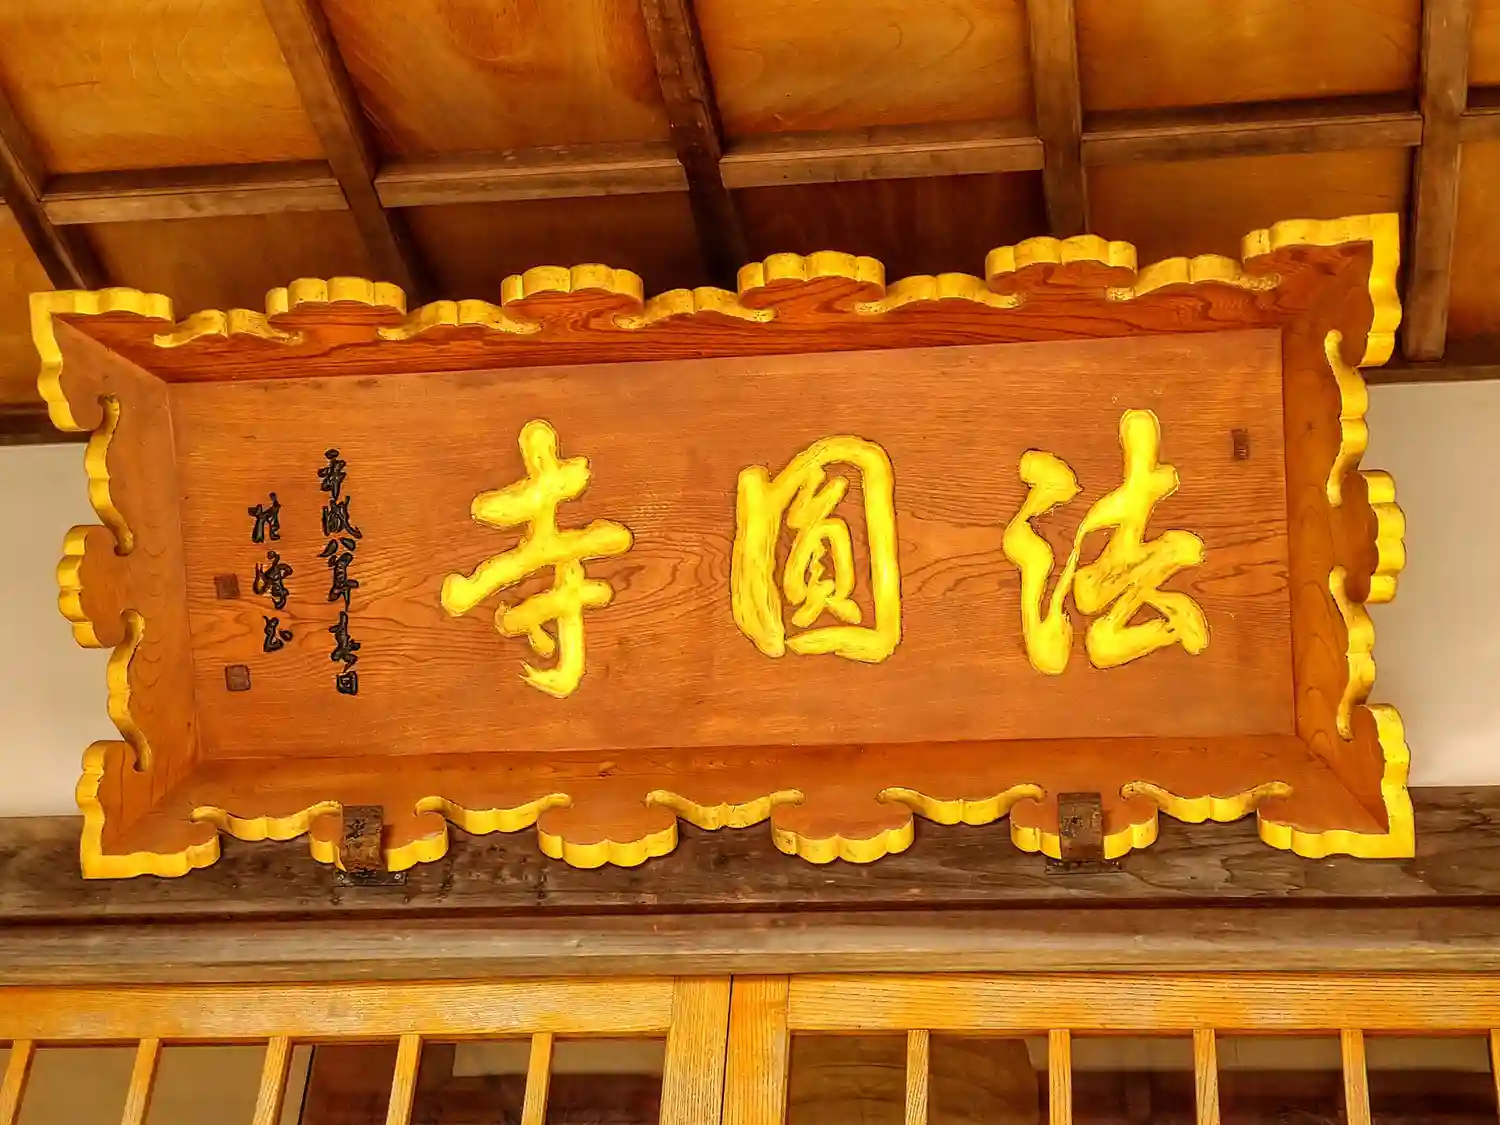 法圓寺
平成八年春日
桂峰書